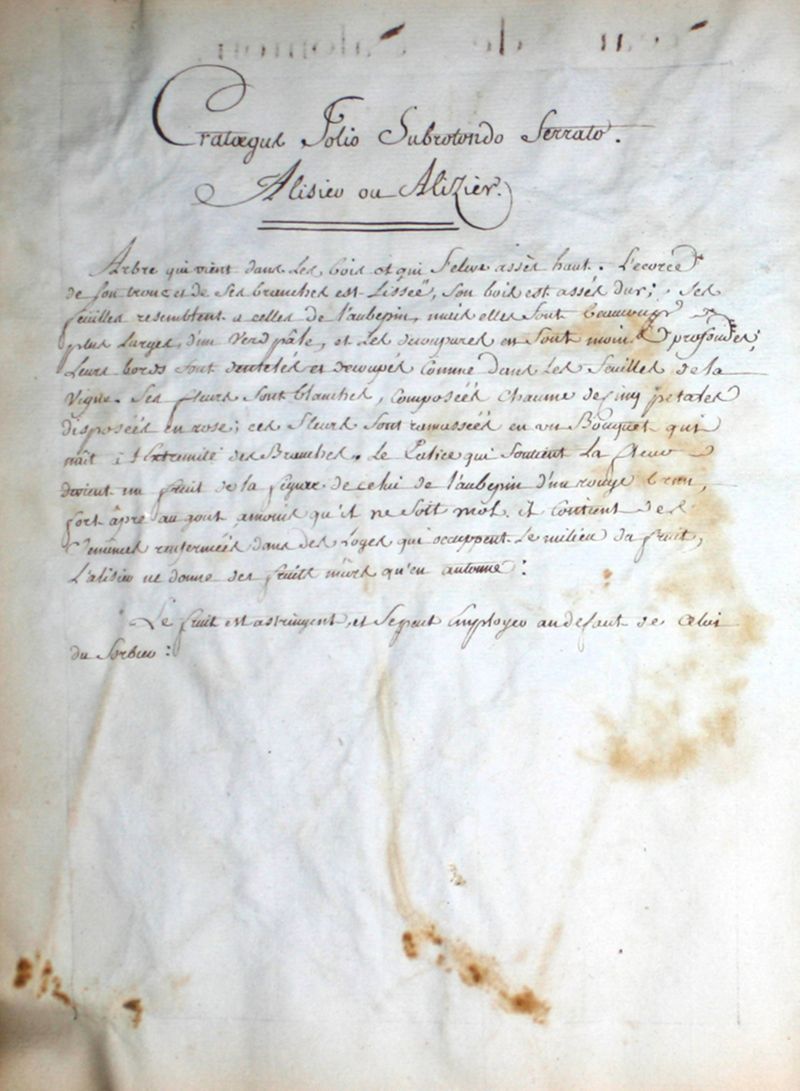 Cratœgus Folio Subrotondo Serrato.
Alisier ou Alizier.
Arbre qui vient dans les bois et qui s'eleve assès haut. L'ecorce
de son tronc et de ses branches est Lisseé, son bois est assés dur; Ses
feuilles resemblent a celles de l'aubepin, mais elles sont beaucoup
plus larges, d'un Verd pâle, et les decoupures en sont moins profondes;
Leurs bords sont dentelés et decoupés comme dans les feuilles de la
Vigne. Ses fleurs sont blanches, composéés chacune de cinq petales
disposéés en rose; ces fleurs sont ramasséés en un Bouquet qui
nait à l'Extremité des Branches. Le Calice qui soutient la fleur
devient un fruit de la figure de celui de l'aubepin d'un rouge brun,
fort âpre au gout amoins qu'il ne soit mol. il contient des
semences renferméés dans des loges qui occuppent le milieu du fruit,
L'alisier ne donne ses fruits mûrs qu'en automne:
Le fruit est astringent, et se peut Employer au defaut de celui
du Sorbier: